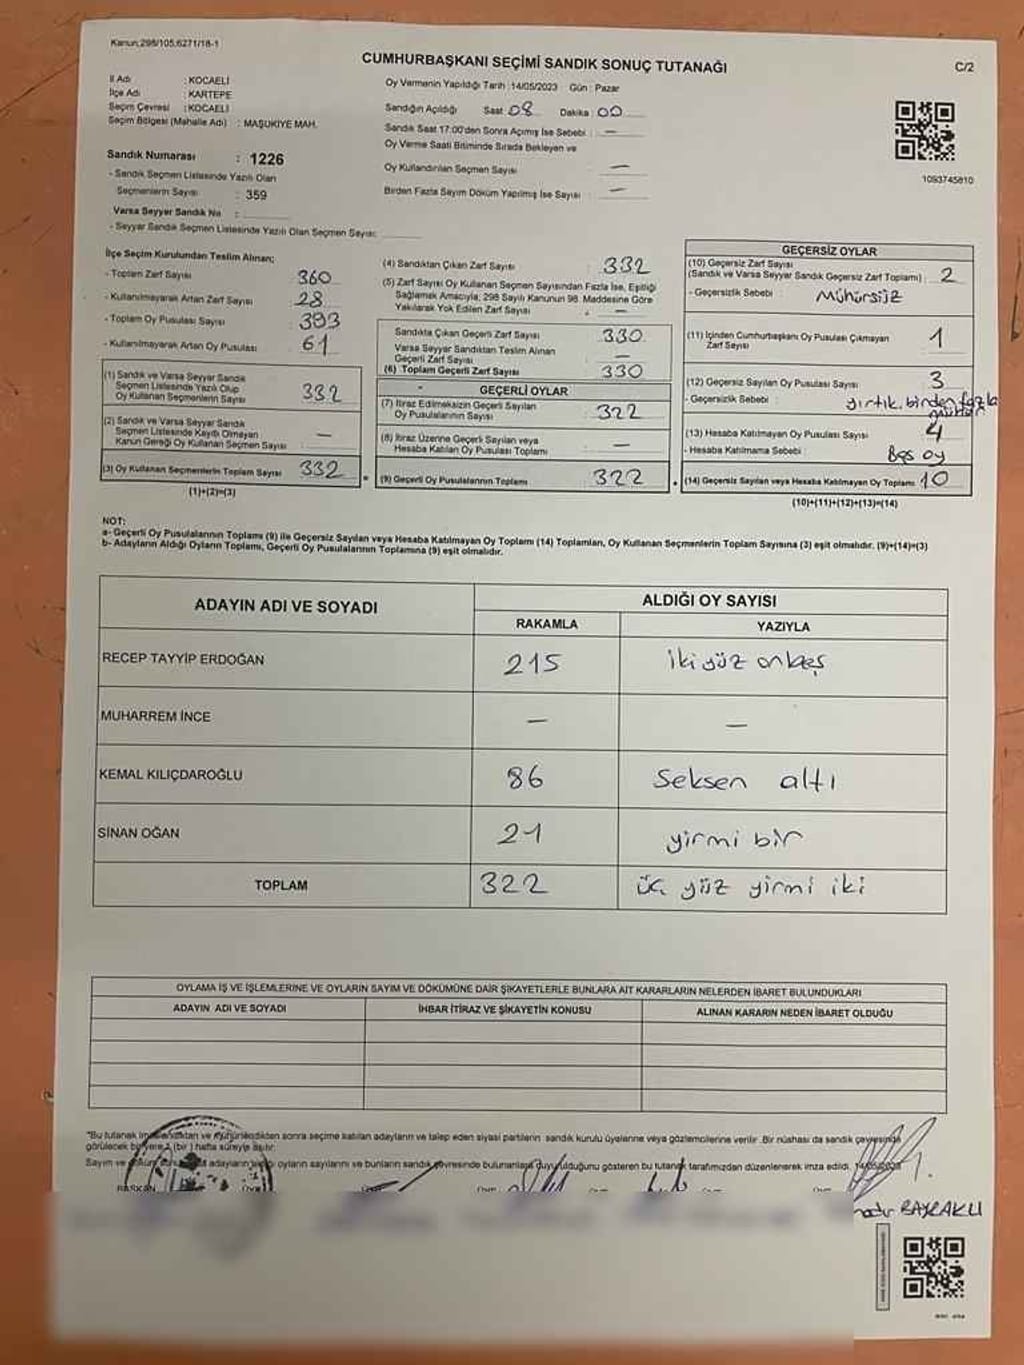 Kanun:298/105,6271/18-1
CUMHURBAŞKANI SEÇİMİ SANDIK SONUÇ TUTANAĞI
C/2
İl Adı : KOCAELİ
İlçe Adı : KARTEPE
Seçim Çevresi : KOCAELİ
Seçim Bölgesi (Mahalle Adı) : MAŞUKİYE MAH.
Sandık Numarası : 1226
- Sandık Seçmen Listesinde Yazılı Olan
Seçmenlerin Sayısı : 359
Varsa Seyyar Sandık No :
- Seyyar Sandık Seçmen Listesinde Yazılı Olan Seçmen Sayısı:
Oy Vermenin Yapıldığı Tarih :14/05/2023 Gün : Pazar
Sandığın Açıldığı Saat 08 Dakika 00
Sandık Saat 17:00'den Sonra Açımış İse Sebebi : —
Oy Verme Saati Bitiminde Sırada Bekleyen ve
Oy Kullandırılan Seçmen Sayısı : —
Birden Fazla Sayım Döküm Yapılmış İse Sayısı : —
1093745810
İlçe Seçim Kurulundan Teslim Alınan;
- Toplam Zarf Sayısı 360
- Kullanılmayarak Artan Zarf Sayısı 28
- Toplam Oy Pusulası Sayısı 393
- Kullanılmayarak Artan Oy Pusulası 61
(1) Sandık ve Varsa Seyyar Sandık
Seçmen Listesinde Yazılı Olup
Oy Kullanan Seçmenlerin Sayısı 332
(2) Sandık ve Varsa Seyyar Sandık
Seçmen Listesinde Kayıtlı Olmayan
Kanun Gereği Oy Kullanan Seçmen Sayısı : —
(3) Oy Kullanan Seçmenlerin Toplam Sayısı 332
(1)+(2)=(3)
(4) Sandıktan Çıkan Zarf Sayısı : 332
(5) Zarf Sayısı Oy Kullanan Seçmen Sayısından Fazla İse, Eşitliği
Sağlamak Amacıyla; 298 Sayılı Kanunun 98. Maddesine Göre
Yakılarak Yok Edilen Zarf Sayısı : —
Sandıkta Çıkan Geçerli Zarf Sayısı 330
Varsa Seyyar Sandıktan Teslim Alınan
Geçerli Zarf Sayısı —
(6) Toplam Geçerli Zarf Sayısı 330
GEÇERLİ OYLAR
(7) İtiraz Edilmeksizin Geçerli Sayılan
Oy Pusulalarının Sayısı 322
(8) İtiraz Üzerine Geçerli Sayılan veya
Hesaba Katılan Oy Pusulası Toplamı —
(9) Geçerli Oy Pusulalarının Toplamı 322
GEÇERSİZ OYLAR
(10) Geçersiz Zarf Sayısı
(Sandık ve Varsa Seyyar Sandık Geçersiz Zarf Toplamı) 2
- Geçersizlik Sebebi : Mühürsüz
(11) İçinden Cumhurbaşkanı Oy Pusulası Çıkmayan
Zarf Sayısı 1
(12) Geçersiz Sayılan Oy Pusulası Sayısı : 3
- Geçersizlik Sebebi : yırtık, birden fazla
mühür
(13) Hesaba Katılmayan Oy Pusulası Sayısı 4
- Hesaba Katılmama Sebebi : Boş oy
(14) Geçersiz Sayılan veya Hesaba Katılmayan Oy Toplamı 10
(10)+(11)+(12)+(13)=(14)
NOT:
a- Geçerli Oy Pusulalarının Toplamı (9) ile Geçersiz Sayılan veya Hesaba Katılmayan Oy Toplamı (14) Toplamları, Oy Kullanan Seçmenlerin Toplam Sayısına (3) eşit olmalıdır. (9)+(14)=(3)
b- Adayların Aldığı Oyların Toplamı, Geçerli Oy Pusulalarının Toplamına (9) eşit olmalıdır.
ADAYIN ADI VE SOYADI ALDIĞI OY SAYISI
RAKAMLA YAZIYLA
RECEP TAYYİP ERDOĞAN 215 İki yüz on beş
MUHARREM İNCE — —
KEMAL KILIÇDAROĞLU 86 Seksen altı
SİNAN OĞAN 21 yirmi bir
TOPLAM 322 üç yüz yirmi iki
OYLAMA İŞ VE İŞLEMLERİNE VE OYLARIN SAYIM VE DÖKÜMÜNE DAİR ŞİKAYETLERLE BUNLARA AİT KARARLARIN NELERDEN İBARET BULUNDUKLARI
ADAYIN ADI VE SOYADI İHBAR İTİRAZ VE ŞİKAYETİN KONUSU ALINAN KARARIN NEDEN İBARET OLDUĞU
"Bu tutanak ve mühürlendikten sonra seçime katılan adayların ve talep eden siyasi partilerin sandık kurulu üyelerine veya gözlemcilerine verilir. Bir nüshası da sandık çevresinde
görülecek bir yere 1 (bir) hafta süreyle asılır.
Sayım ve adayların oyların sayılarını ve bunların sandık çevresinde bulunanlara duyurulduğunu gösteren bu tutanak tarafımızdan düzenlenerek imza edildi. 14/05/2023
BAŞKAN
BAYRAKLI